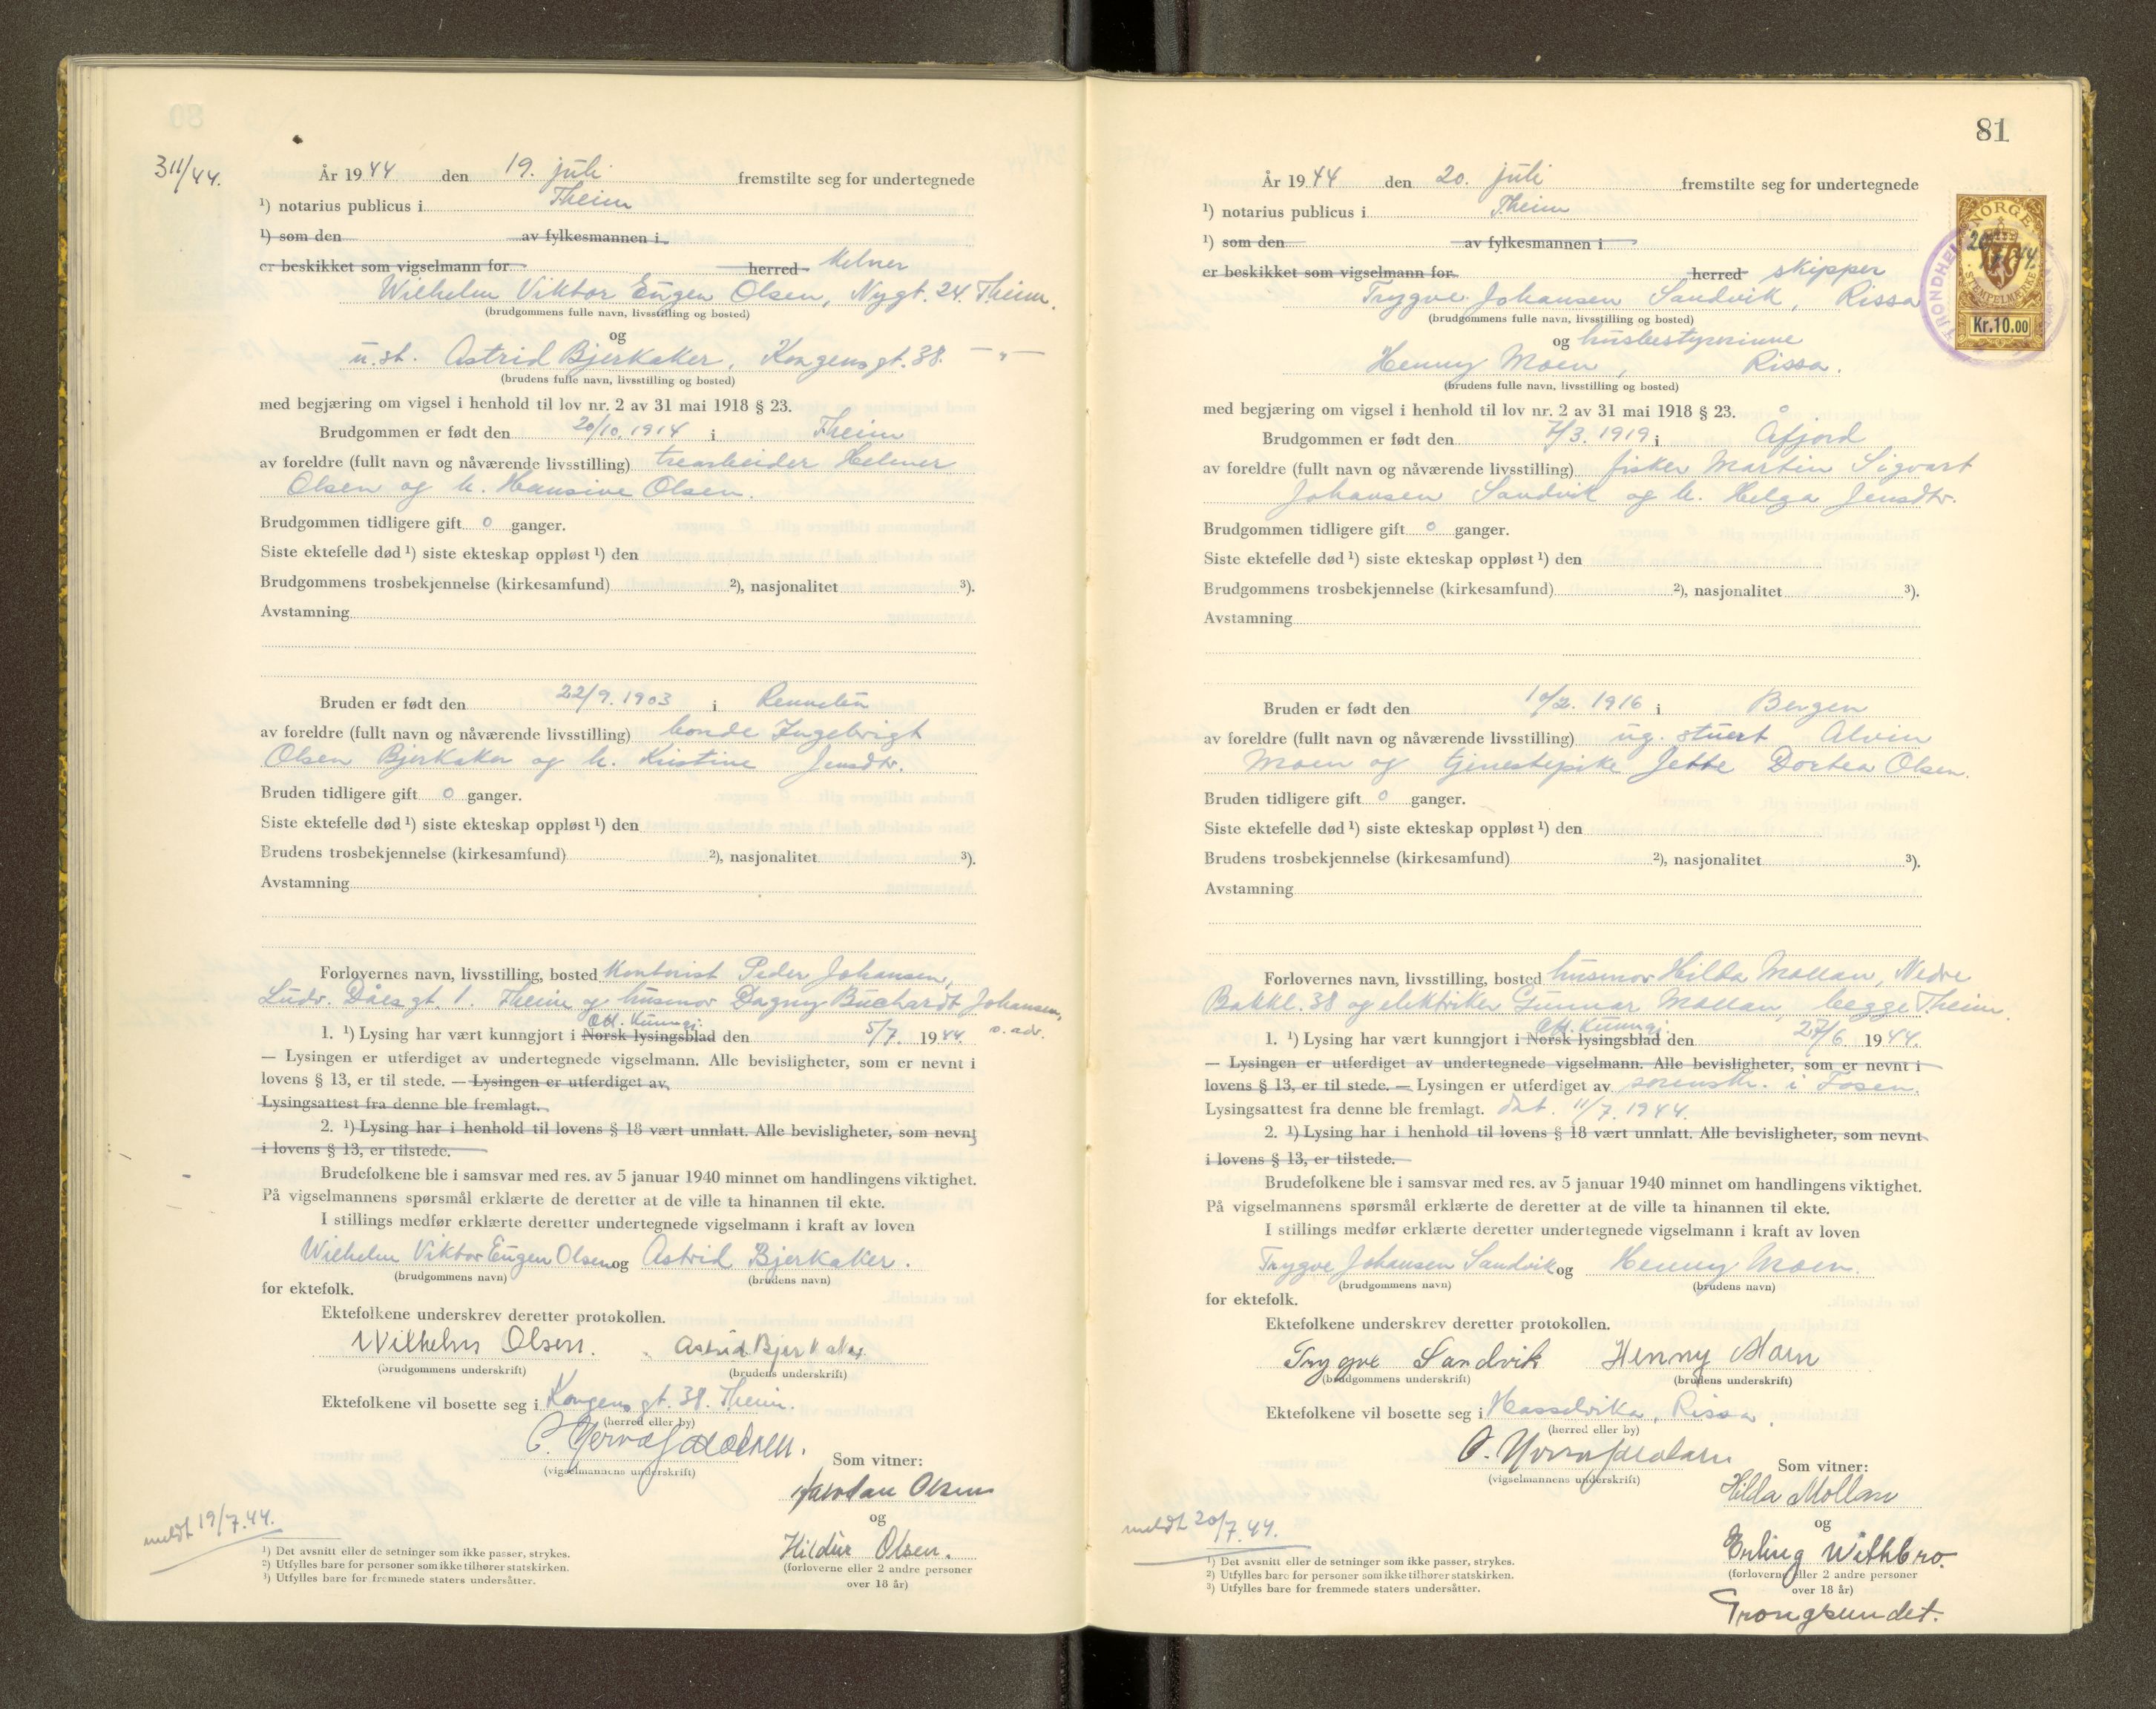 311/44.
År 19 44 den 19. juli fremstilte seg for undertegnede
¹) notarius publicus i Theim
¹) som den av fylkesmannen i
er beskikket som vigselmann for herred
Wilhelm Viktor Eugen Olsen, Nygt. 24. Theim.
(brudgommens fulle navn, livsstilling og bosted)
og
u.st. Astrid Bjerkaker, Kongens gt. 38. — " —
(brudens fulle navn, livsstilling og bosted)
med begjæring om vigsel i henhold til lov nr. 2 av 31 mai 1918 § 23.
Brudgommen er født den 20/10. 1914 i Theim
av foreldre (fullt navn og nåværende livsstilling) trearbeider Helmer
Olsen og h. Hansine Olsen.
Brudgommen tidligere gift 0 ganger.
Siste ektefelle død ¹) siste ekteskap oppløst ¹) den
Brudgommens trosbekjennelse (kirkesamfund) ²), nasjonalitet ³).
Avstamning
Bruden er født den 22/9. 1903 i Rennebu
av foreldre (fullt navn og nåværende livsstilling) bonde Ingebrigt
Olsen Bjerkaker og h. Kristine Jensdtr.
Bruden tidligere gift 0 ganger.
Siste ektefelle død ¹) siste ekteskap oppløst ¹) den
Brudens trosbekjennelse (kirkesamfund) ²), nasjonalitet ³).
Avstamning
Forlovernes navn, livsstilling, bosted Kontorist Peder Johansen,
Ludv. Dåes gt. 1. Theim og husmor Dagny Buchardt Johansen,
s. adr.
Off. Kunngj.
1. ¹) Lysing har vært kunngjort i Norsk lysingsblad den 5/7. 19 44.
— Lysingen er utferdiget av undertegnede vigselmann. Alle bevisligheter, som er nevnt i
lovens § 13, er til stede. — Lysingen er utferdiget av
Lysingsattest fra denne ble fremlagt.
2. ¹) Lysing har i henhold til lovens § 18 vært unnlatt. Alle bevisligheter, som nevnt
i lovens § 13, er tilstede.
Brudefolkene ble i samsvar med res. av 5 januar 1940 minnet om handlingens viktighet.
På vigselmannens spørsmål erklærte de deretter at de ville ta hinannen til ekte.
I stillings medfør erklærte deretter undertegnede vigselmann i kraft av loven
Wilhelm Viktor Eugen Olsen og Astrid Bjerkaker.
(brudgommens navn) (brudens navn)
for ektefolk.
Ektefolkene underskrev deretter protokollen.
Wilhelm Olsen. Astrid Bjerkaker
(brudgommens underskrift) (brudens underskrift)
Ektefolkene vil bosette seg i Kongens gt. 38. Theim.
(herred eller by)
(vigselmannens underskrift)
Som vitner:
Olsen
og
Hildur Olsen.
(forloverne eller 2 andre personer
over 18 år)
meldt 19/7. 44.
¹) Det avsnitt eller de setninger som ikke passer, strykes.
²) Utfylles bare for personer som ikke tilhører statskirken.
³) Utfylles bare for fremmede staters undersåtter.
81
År 19 44 den 20. juli fremstilte seg for undertegnede
¹) notarius publicus i Theim
¹) som den av fylkesmannen i
er beskikket som vigselmann for herred skipper
Trygve Johansen Sandvik, Rissa
(brudgommens fulle navn, livsstilling og bosted)
og husbestyrerinne
Henny Moen, Rissa.
(brudens fulle navn, livsstilling og bosted)
NORGE
STEMPELMERKE
Kr.10.00
med begjæring om vigsel i henhold til lov nr. 2 av 31 mai 1918 § 23.
Brudgommen er født den 7/3. 1919 i Åfjord
av foreldre (fullt navn og nåværende livsstilling) fisker Martin Sigvart
Johansen Sandvik og h. Helga Jensdtr.
Brudgommen tidligere gift 0 ganger.
Siste ektefelle død ¹) siste ekteskap oppløst ¹) den
Brudgommens trosbekjennelse (kirkesamfund) ²), nasjonalitet ³).
Avstamning
Bruden er født den 10/2. 1916 i Bergen
av foreldre (fullt navn og nåværende livsstilling) ug. stuert Alvin
Moen og tjenestepike Jette Dortea Olsen.
Bruden tidligere gift 0 ganger.
Siste ektefelle død ¹) siste ekteskap oppløst ¹) den
Brudens trosbekjennelse (kirkesamfund) ²), nasjonalitet ³).
Avstamning
Forlovernes navn, livsstilling, bosted husmor Hilda Mollan, Nedre
Bakkl. 38 og elektriker Gunnar Mollan, begge Theim.
Off. Kunngj.
1. ¹) Lysing har vært kunngjort i Norsk lysingsblad den 27/6 19 44.
— Lysingen er utferdiget av undertegnede vigselmann. Alle bevisligheter, som er nevnt i
lovens § 13, er til stede. — Lysingen er utferdiget av sorenskr. i Fosen.
Lysingsattest fra denne ble fremlagt. dat. 11/7. 1944.
2. ¹) Lysing har i henhold til lovens § 18 vært unnlatt. Alle bevisligheter, som nevnt
i lovens § 13, er tilstede.
Brudefolkene ble i samsvar med res. av 5 januar 1940 minnet om handlingens viktighet.
På vigselmannens spørsmål erklærte de deretter at de ville ta hinannen til ekte.
I stillings medfør erklærte deretter undertegnede vigselmann i kraft av loven
Trygve Johansen Sandvik og Henny Moen.
(brudgommens navn) (brudens navn)
for ektefolk.
Ektefolkene underskrev deretter protokollen.
Trygve Sandvik Henny Moen
(brudgommens underskrift) (brudens underskrift)
Ektefolkene vil bosette seg i Hasselvika, Rissa.
(herred eller by)
(vigselmannens underskrift)
Som vitner:
Hilda Mollan
og
Erling Withbro.
(forloverne eller 2 andre personer
over 18 år)
Trongsundet.
meldt 20/7. 44.
¹) Det avsnitt eller de setninger som ikke passer, strykes.
²) Utfylles bare for personer som ikke tilhører statskirken.
³) Utfylles bare for fremmede staters undersåtter.